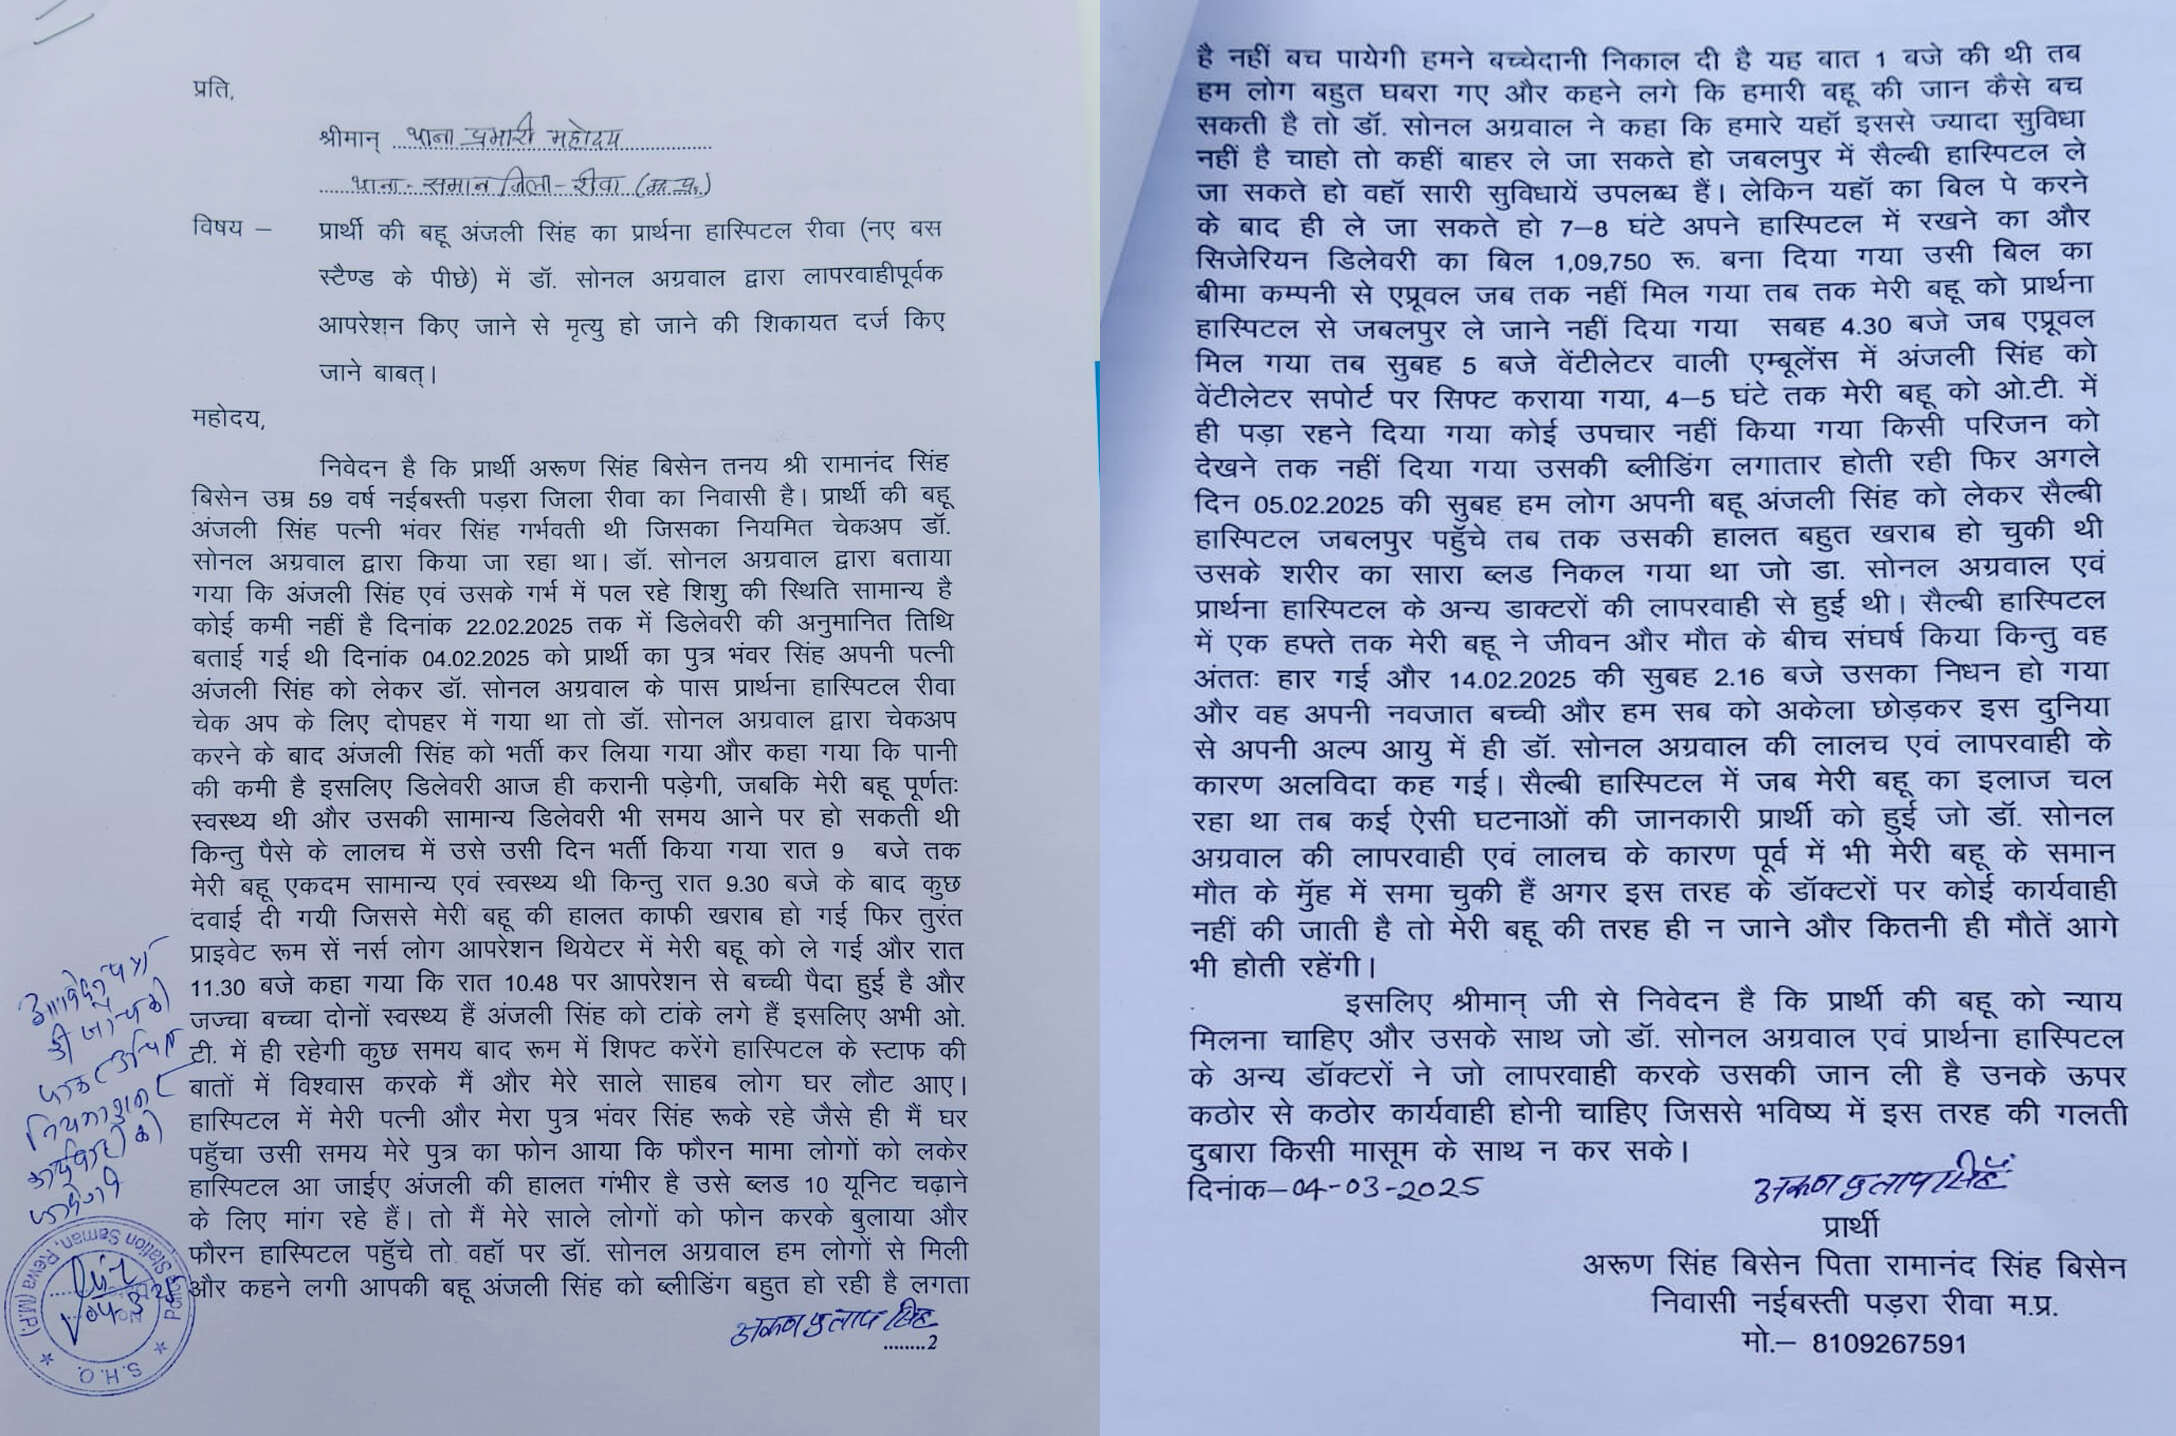 प्रति,
श्रीमान् थाना प्रभारी महोदय
थाना - समान जिला - रीवा (म.प्र.)
विषय – प्रार्थी की बहू अंजली सिंह का प्रार्थना हास्पिटल रीवा (नए बस
स्टैण्ड के पीछे) में डॉ. सोनल अग्रवाल द्वारा लापरवाहीपूर्वक
आपरेशन किए जाने से मृत्यु हो जाने की शिकायत दर्ज किए
जाने बाबत्।
महोदय,
निवेदन है कि प्रार्थी अरूण सिंह बिसेन तनय श्री रामानंद सिंह
बिसेन उम्र 59 वर्ष नईबस्ती पड़रा जिला रीवा का निवासी है। प्रार्थी की बहू
अंजली सिंह पत्नी भंवर सिंह गर्भवती थी जिसका नियमित चेकअप डॉ.
सोनल अग्रवाल द्वारा किया जा रहा था। डॉ. सोनल अग्रवाल द्वारा बताया
गया कि अंजली सिंह एवं उसके गर्भ में पल रहे शिशु की स्थिति सामान्य है
कोई कमी नहीं है दिनांक 22.02.2025 तक में डिलेवरी की अनुमानित तिथि
बताई गई थी दिनांक 04.02.2025 को प्रार्थी का पुत्र भंवर सिंह अपनी पत्नी
अंजली सिंह को लेकर डॉ. सोनल अग्रवाल के पास प्रार्थना हास्पिटल रीवा
चेक अप के लिए दोपहर में गया था तो डॉ. सोनल अग्रवाल द्वारा चेकअप
करने के बाद अंजली सिंह को भर्ती कर लिया गया और कहा गया कि पानी
की कमी है इसलिए डिलेवरी आज ही करानी पड़ेगी, जबकि मेरी बहू पूर्णतः
स्वस्थ्य थी और उसकी सामान्य डिलेवरी भी समय आने पर हो सकती थी
किन्तु पैसे के लालच में उसे उसी दिन भर्ती किया गया रात 9 बजे तक
मेरी बहू एकदम सामान्य एवं स्वस्थ्य थी किन्तु रात 9.30 बजे के बाद कुछ
दवाई दी गयी जिससे मेरी बहू की हालत काफी खराब हो गई फिर तुरंत
प्राइवेट रूम सें नर्स लोग आपरेशन थियेटर में मेरी बहू को ले गई और रात
11.30 बजे कहा गया कि रात 10.48 पर आपरेशन से बच्ची पैदा हुई है और
जज्चा बच्चा दोनों स्वस्थ्य हैं अंजली सिंह को टांके लगे हैं इसलिए अभी ओ.
टी. में ही रहेगी कुछ समय बाद रूम में शिफ्ट करेंगे हास्पिटल के स्टाफ की
बातों में विश्वास करके मैं और मेरे साले साहब लोग घर लौट आए।
हास्पिटल में मेरी पत्नी और मेरा पुत्र भंवर सिंह रूके रहे जैसे ही मैं घर
पहुँचा उसी समय मेरे पुत्र का फोन आया कि फौरन मामा लोगों को लकेर
हास्पिटल आ जाईए अंजली की हालत गंभीर है उसे ब्लड 10 यूनिट चढ़ाने
के लिए मांग रहे हैं। तो मैं मेरे साले लोगों को फोन करके बुलाया और
फौरन हास्पिटल पहुँचे तो वहॉ पर डॉ. सोनल अग्रवाल हम लोगों से मिली
और कहने लगी आपकी बहू अंजली सिंह को ब्लीडिंग बहुत हो रही है लगता
अरूण प्रताप सिंह
........2
आवेदन पत्र
की जांच की
जाकर उचित
नियमानुसार
कार्यवाही की
जावेगी
Police Station Saman, Rewa (M.P.)
S.H.O.
है नहीं बच पायेगी हमने बच्चेदानी निकाल दी है यह बात 1 बजे की थी तब
हम लोग बहुत घबरा गए और कहने लगे कि हमारी बहू की जान कैसे बच
सकती है तो डॉ. सोनल अग्रवाल ने कहा कि हमारे यहॉ इससे ज्यादा सुविधा
नहीं है चाहो तो कहीं बाहर ले जा सकते हो जबलपुर में सैल्बी हास्पिटल ले
जा सकते हो वहॉ सारी सुविधायें उपलब्ध हैं। लेकिन यहॉ का बिल पे करने
के बाद ही ले जा सकते हो 7–8 घंटे अपने हास्पिटल में रखने का और
सिजेरियन डिलेवरी का बिल 1,09,750 रू. बना दिया गया उसी बिल का
बीमा कम्पनी से एप्रूवल जब तक नहीं मिल गया तब तक मेरी बहू को प्रार्थना
हास्पिटल से जबलपुर ले जाने नहीं दिया गया सबह 4.30 बजे जब एप्रूवल
मिल गया तब सुबह 5 बजे वेंटीलेटर वाली एम्बूलेंस में अंजली सिंह को
वेंटीलेटर सपोर्ट पर सिफ्ट कराया गया, 4–5 घंटे तक मेरी बहू को ओ.टी. में
ही पड़ा रहने दिया गया कोई उपचार नहीं किया गया किसी परिजन को
देखने तक नहीं दिया गया उसकी ब्लीडिंग लगातार होती रही फिर अगले
दिन 05.02.2025 की सुबह हम लोग अपनी बहू अंजली सिंह को लेकर सैल्बी
हास्पिटल जबलपुर पहुँचे तब तक उसकी हालत बहुत खराब हो चुकी थी
उसके शरीर का सारा ब्लड निकल गया था जो डा. सोनल अग्रवाल एवं
प्रार्थना हास्पिटल के अन्य डाक्टरों की लापरवाही से हुई थी। सैल्बी हास्पिटल
में एक हफ्ते तक मेरी बहू ने जीवन और मौत के बीच संघर्ष किया किन्तु वह
अंततः हार गई और 14.02.2025 की सुबह 2.16 बजे उसका निधन हो गया
और वह अपनी नवजात बच्ची और हम सब को अकेला छोड़कर इस दुनिया
से अपनी अल्प आयु में ही डॉ. सोनल अग्रवाल की लालच एवं लापरवाही के
कारण अलविदा कह गई। सैल्बी हास्पिटल में जब मेरी बहू का इलाज चल
रहा था तब कई ऐसी घटनाओं की जानकारी प्रार्थी को हुई जो डॉ. सोनल
अग्रवाल की लापरवाही एवं लालच के कारण पूर्व में भी मेरी बहू के समान
मौत के मुँह में समा चुकी हैं अगर इस तरह के डॉक्टरों पर कोई कार्यवाही
नहीं की जाती है तो मेरी बहू की तरह ही न जाने और कितनी ही मौतें आगे
भी होती रहेंगी।
इसलिए श्रीमान् जी से निवेदन है कि प्रार्थी की बहू को न्याय
मिलना चाहिए और उसके साथ जो डॉ. सोनल अग्रवाल एवं प्रार्थना हास्पिटल
के अन्य डॉक्टरों ने जो लापरवाही करके उसकी जान ली है उनके ऊपर
कठोर से कठोर कार्यवाही होनी चाहिए जिससे भविष्य में इस तरह की गलती
दुबारा किसी मासूम के साथ न कर सके।
दिनांक–04-03-2025
अरूण प्रताप सिंह
प्रार्थी
अरूण सिंह बिसेन पिता रामानंद सिंह बिसेन
निवासी नईबस्ती पड़रा रीवा म.प्र.
मो.– 8109267591